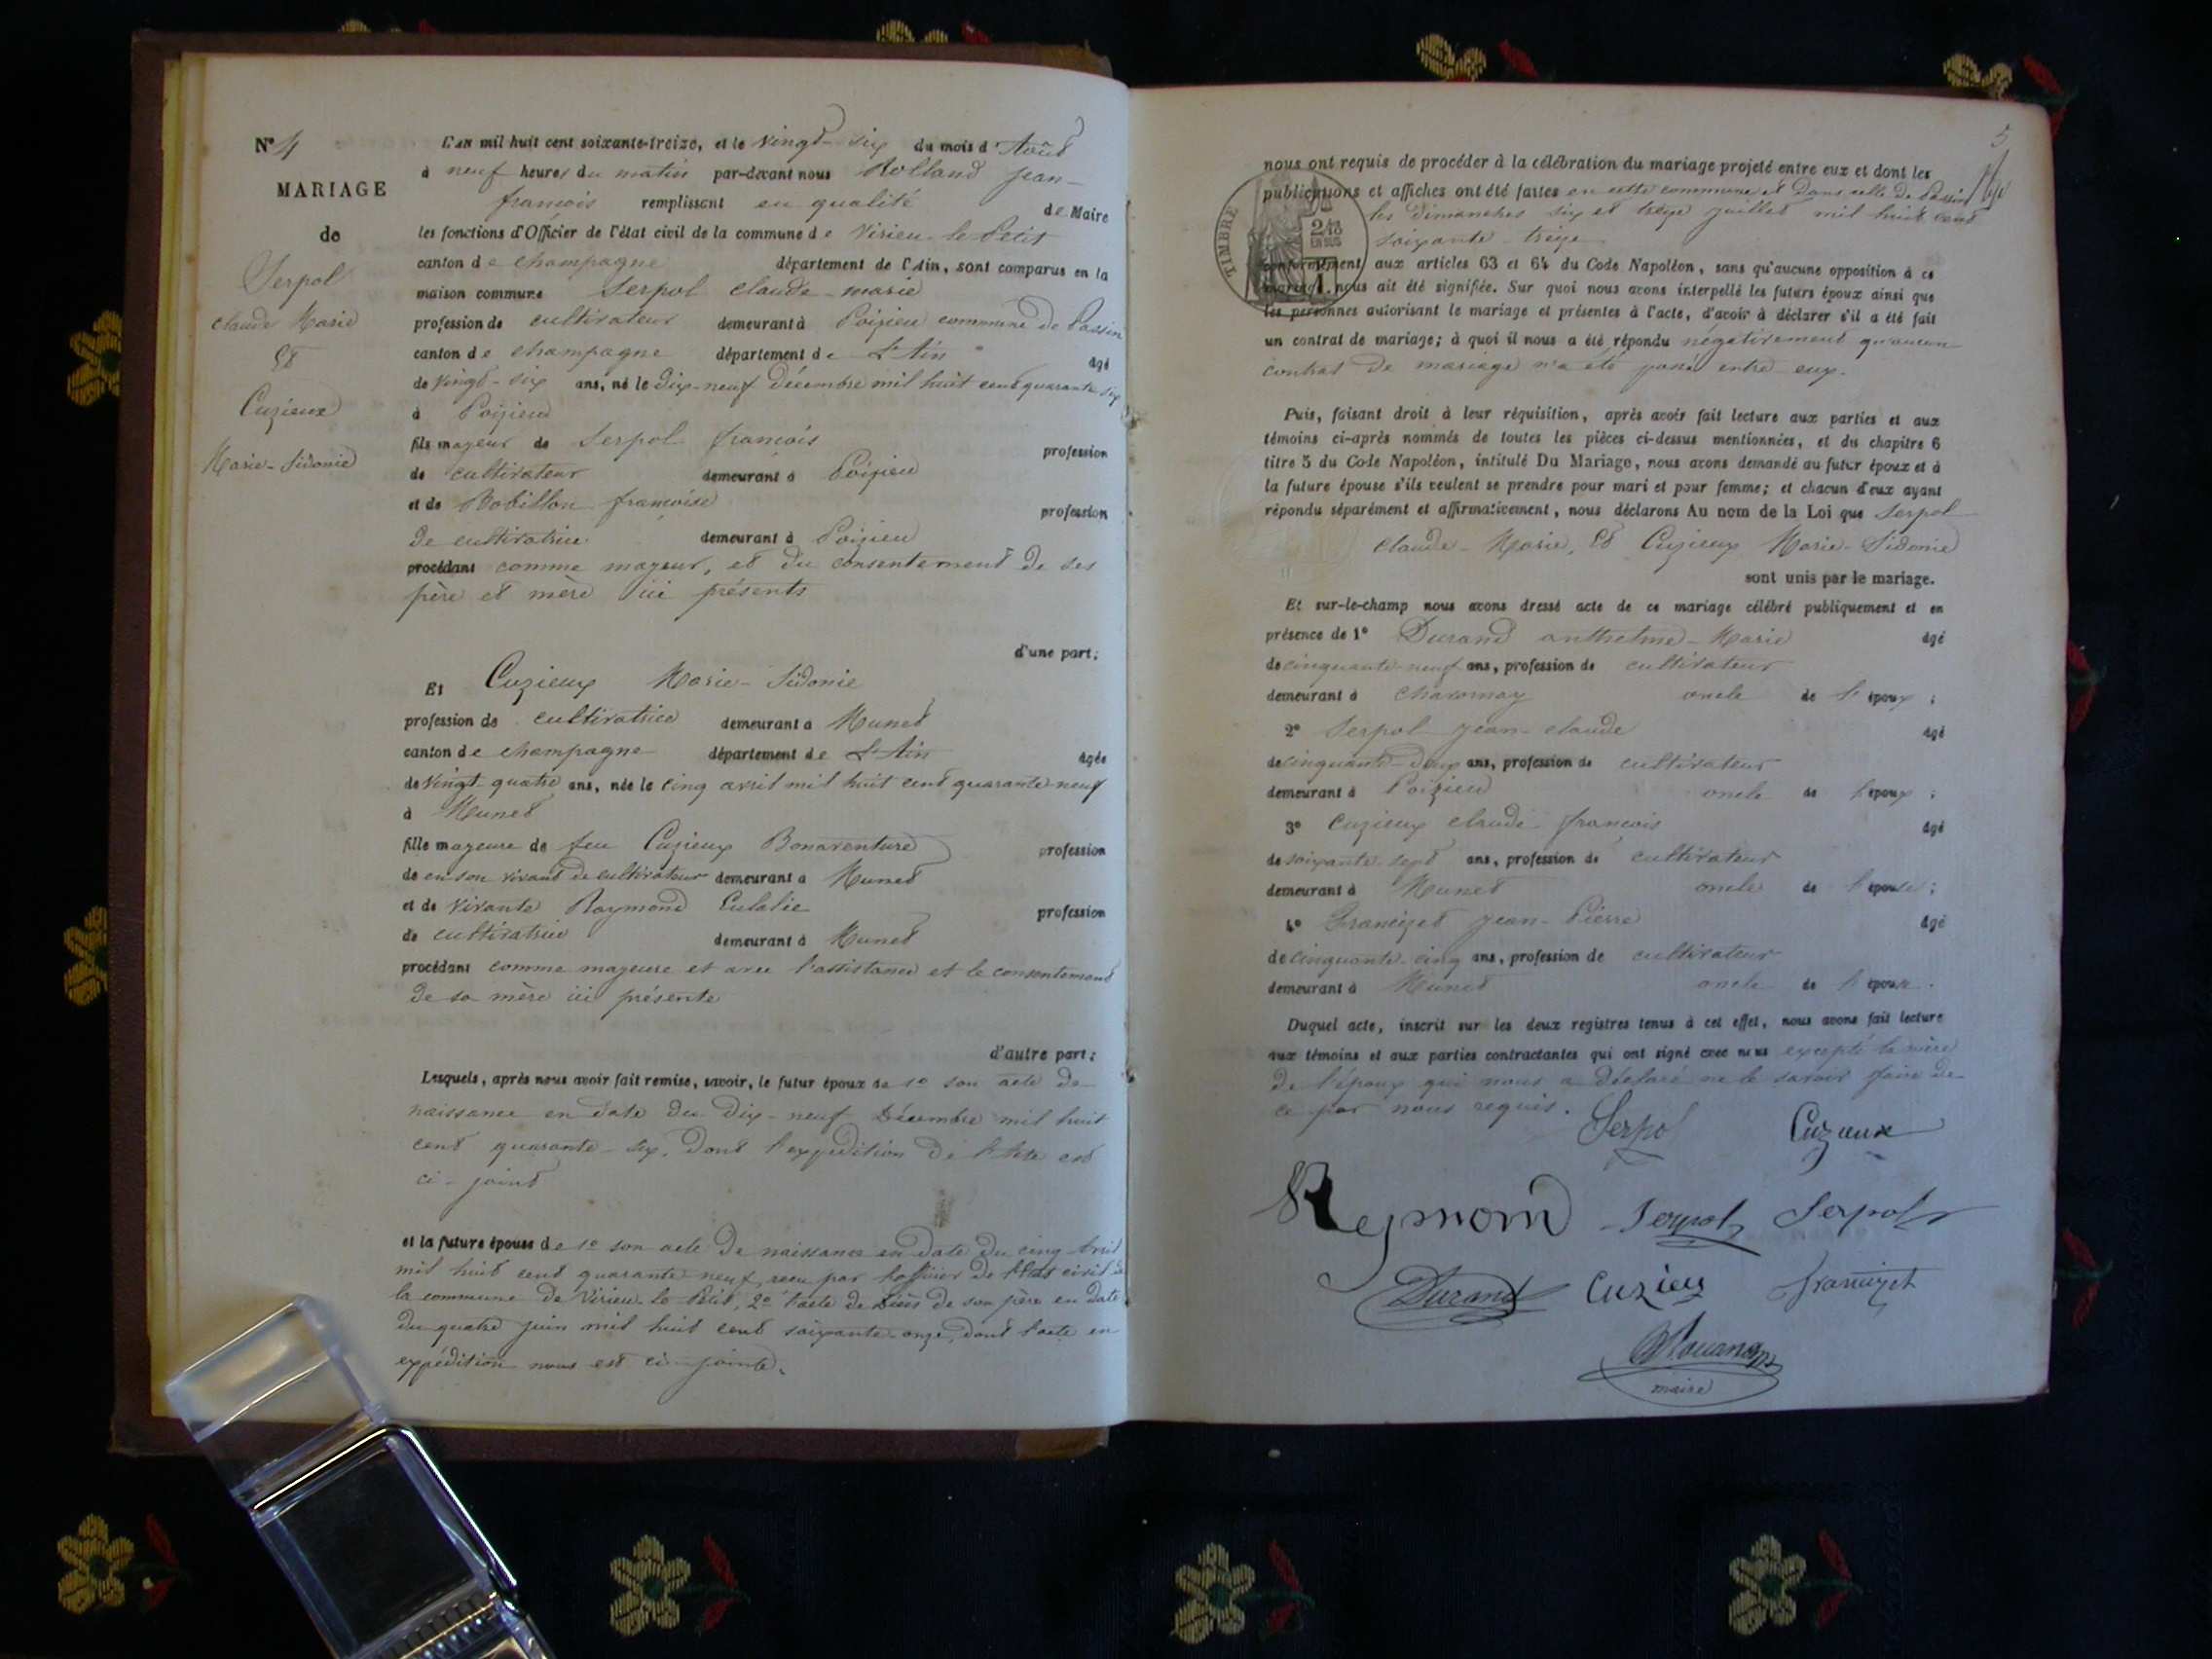 N° 4
MARIAGE
de
Serpol
Claude Marie
Et
Cuzieux
Marie-Sidonie
L'an mil huit cent soixante-treize, et le vingt-six du mois d'Août
à neuf heures du matin par-devant nous Rolland Jean-
françois remplissant en qualité de Maire
les fonctions d'Officier de l'état civil de la commune de Virieu-le-Petit
canton de champagne département de l'Ain, sont comparus en la
maison commune Serpol claude-marie
profession de cultivateur demeurant à Poizieu commune de Passin
canton de champagne département de L'Ain âgé
de vingt-six ans, né le dix-neuf Décembre mil huit cent quarante six
à Poizieu
fils mayeur de Serpol françois profession
de cultivateur demeurant à Poizieu
et de Bobillon françoise profession
de cultivatrice demeurant à Poizieu
procédant comme mayeur, et du consentement de ses
père et mère ici présents
d'une part;
Et Cuzieux Marie-Sidonie
profession de cultivatrice demeurant à Munet
canton de champagne département de L'Ain âgée
de vingt-quatre ans, née le cinq avril mil huit cent quarante-neuf
à Munet
fille mayeure de feu Cuzieux Bonaventure profession
de en son vivant de cultivateur demeurant à Munet
et de vivante Raymond Eulalie profession
de cultivatrice demeurant à Munet
procédant comme mayeure et avec l'assistance et le consentement
de sa mère ici présente
d'autre part;
Lesquels, après nous avoir fait remise, savoir, le futur époux de 1° son acte de
naissance en date du dix-neuf Décembre mil huit
cent quarante-six, dont l'expédition de l'acte est
ci-joint
et la future épouse de 1° son acte de naissance en date du cinq Avril
mil huit cent quarante neuf, reçu par l'officier de l'état civil de
la commune de Virieu-le-Petit, 2° l'acte de décès de son père en date
du quatre juin mil huit cent soixante-onze, dont l'acte en
expédition nous est ci-jointe.
5
nous ont requis de procéder à la célébration du mariage projeté entre eux et dont les
publications et affiches ont été faites en cette commune et dans celle de Passin
les dimanches six et treize juillet mil huit cent
soixante-treize
TIMBRE
2/10
EN SUS
conformément aux articles 63 et 64 du Code Napoléon, sans qu'aucune opposition à ce
mariage nous ait été signifiée. Sur quoi nous avons interpellé les futurs époux ainsi que
les personnes autorisant le mariage et présentes à l'acte, d'avoir à déclarer s'il a été fait
un contrat de mariage; à quoi il nous a été répondu négativement qu'aucun
contrat de mariage n'a été passé entre eux.
Puis, faisant droit à leur réquisition, après avoir fait lecture aux parties et aux
témoins ci-après nommés de toutes les pièces ci-dessus mentionnées, et du chapitre 6
titre 5 du Code Napoléon, intitulé Du Mariage, nous avons demandé au futur époux et à
la future épouse s'ils veulent se prendre pour mari et pour femme; et chacun d'eux ayant
répondu séparément et affirmativement, nous déclarons Au nom de la Loi que Serpol
Claude-Marie, Et Cuzieux Marie-Sidonie
sont unis par le mariage.
Et sur-le-champ nous avons dressé acte de ce mariage célébré publiquement et en
présence de 1° Durand anthelme-Marie âgé
de cinquante-neuf ans, profession de cultivateur
demeurant à oncle de l'époux;
2° Serpol jean-claude âgé
de cinquante-deux ans, profession de cultivateur
demeurant à Poizieu oncle de l'époux;
3° Cuzieux claude-françois âgé
de soixante-sept ans, profession de cultivateur
demeurant à Munet oncle de l'épouse;
4° Francizet Jean-Pierre âgé
de cinquante-cinq ans, profession de cultivateur
demeurant à Munet oncle de l'épouse.
Duquel acte, inscrit sur les deux registres tenus à cet effet, nous avons fait lecture
aux témoins et aux parties contractantes qui ont signé avec nous excepté la mère
de l'époux qui nous a déclaré ne le savoir faire de
ce par nous requis.
Serpol Cuzieux
Reymond Serpol Serpol
Durand Cuzieu francizet
maire